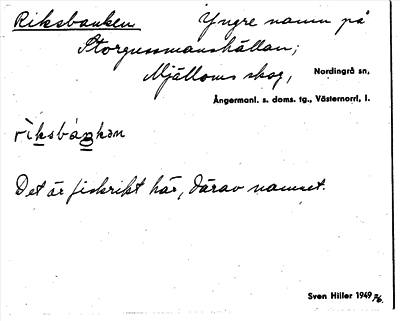 Riksbanken Yngre namn på
Storgussmanshällan;
Mjälloms skog, Nordingrå sn,
Ångermanl. s. doms. tg., Västernorrl. l.
rìksbáŋkən
Det är fiskrikt här, därav namnet.
Sven Hiller 1949